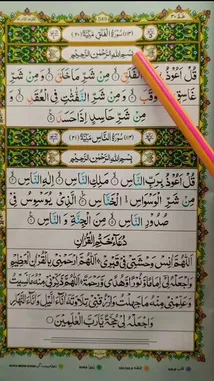 سُوْرَةُ الْفَلَقِ مَكِّيَّةٌ
بِسْمِ اللهِ الرَّحْمٰنِ الرَّحِيْمِ
قُلْ اَعُوْذُ بِرَبِّ الْفَلَقِ مِنْ شَرِّ مَا خَلَقَ وَ مِنْ شَرِّ
غَاسِقٍ اِذَا وَقَبَ وَ مِنْ شَرِّ النَّفّٰثٰتِ فِى الْعُقَدِ وَ
مِنْ شَرِّ حَاسِدٍ اِذَا حَسَدَ
سُوْرَةُ النَّاسِ مَكِّيَّةٌ
بِسْمِ اللهِ الرَّحْمٰنِ الرَّحِيْمِ
قُلْ اَعُوْذُ بِرَبِّ النَّاسِ مَلِكِ النَّاسِ اِلٰهِ النَّاسِ
مِنْ شَرِّ الْوَسْوَاسِ الْخَنَّاسِ الَّذِىْ يُوَسْوِسُ فِىْ
صُدُوْرِ النَّاسِ مِنَ الْجِنَّةِ وَ النَّاسِ
دُعَآءُ خَتْمِ الْقُرْاٰنِ
اَللّٰهُمَّ اٰنِسْ وَحْشَتِىْ فِىْ قَبْرِىْ اَللّٰهُمَّ ارْحَمْنِىْ بِالْقُرْاٰنِ الْعَظِيْمِ
وَاجْعَلْهُ لِىْ اِمَامًا وَّ نُوْرًا وَّ هُدًى وَّ رَحْمَةً اَللّٰهُمَّ ذَكِّرْنِىْ مِنْهُ مَا نَسِيْتُ
وَعَلِّمْنِىْ مِنْهُ مَا جَهِلْتُ وَارْزُقْنِىْ تِلَاوَتَهٗ اٰنَآءَ الَّيْلِ وَاٰنَآءَ النَّهَارِ
وَاجْعَلْهُ لِىْ حُجَّةً يَّا رَبَّ الْعٰلَمِيْنَ